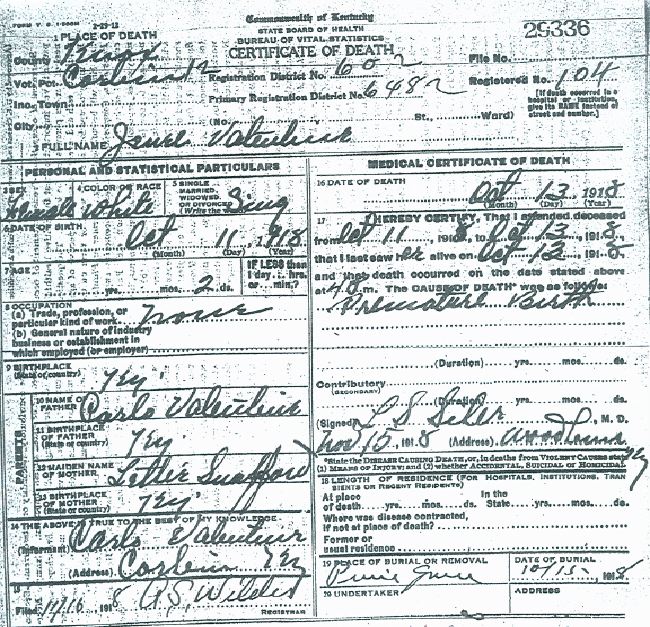 FORM V. S.
Commonwealth of Kentucky
STATE BOARD OF HEALTH
BUREAU OF VITAL STATISTICS
CERTIFICATE OF DEATH
29336
1 PLACE OF DEATH
County Knox
Vot. Pct. Corbin # 2
Inc. Town
City
Registration District No. 602
Primary Registration District No. 6482
File No.
Registered No. 104
(No. St., Ward)
[If death occurred in a hospital or institution, give its NAME instead of street and number.]
FULL NAME Valentine
PERSONAL AND STATISTICAL PARTICULARS
3 SEX Female
4 COLOR OR RACE White
5 SINGLE MARRIED WIDOWED OR DIVORCED (Write the word) Sing
6 DATE OF BIRTH Oct 11, 1918
(Month) (Day) (Year)
7 AGE yrs. mos. 2 ds.
IF LESS than 1 day, hrs. or min.?
8 OCCUPATION
(a) Trade, profession, or particular kind of work None
(b) General nature of industry business or establishment in which employed (or employer)
9 BIRTHPLACE (State or country) Ky
PARENTS
10 NAME OF FATHER Carlo Valentine
11 BIRTHPLACE OF FATHER (State or country) Ky
12 MAIDEN NAME OF MOTHER
13 BIRTHPLACE OF MOTHER (State or country) Ky
14 THE ABOVE IS TRUE TO THE BEST OF MY KNOWLEDGE
(Informant) Carlo Valentine
(Address) Corbin Ky
15
Filed 11/16 1918
REGISTRAR
MEDICAL CERTIFICATE OF DEATH
16 DATE OF DEATH Oct 13 1918
(Month) (Day) (Year)
17 I HEREBY CERTIFY, That I attended deceased
from Oct 11, 1918, to Oct 13, 1918,
that I last saw her alive on Oct 12, 1918,
and that death occurred on the date stated above
at m. The CAUSE OF DEATH* was as follows:
Premature Birth
(Duration) yrs. mos. ds.
Contributory (SECONDARY)
(Duration) yrs. mos. ds.
(Signed) M. D.
Nov 15, 1918 (Address)
*State the DISEASE CAUSING DEATH, or, in deaths from VIOLENT CAUSES state (1) MEANS OF INJURY; and (2) whether ACCIDENTAL, SUICIDAL or HOMICIDAL.
18 LENGTH OF RESIDENCE (FOR HOSPITALS, INSTITUTIONS, TRANSIENTS OR RECENT RESIDENTS)
At place of death yrs. mos. ds. In the State yrs. mos. ds.
Where was disease contracted, if not at place of death?
Former or usual residence
19 PLACE OF BURIAL OR REMOVAL
DATE OF BURIAL 10/15, 1918
20 UNDERTAKER
ADDRESS